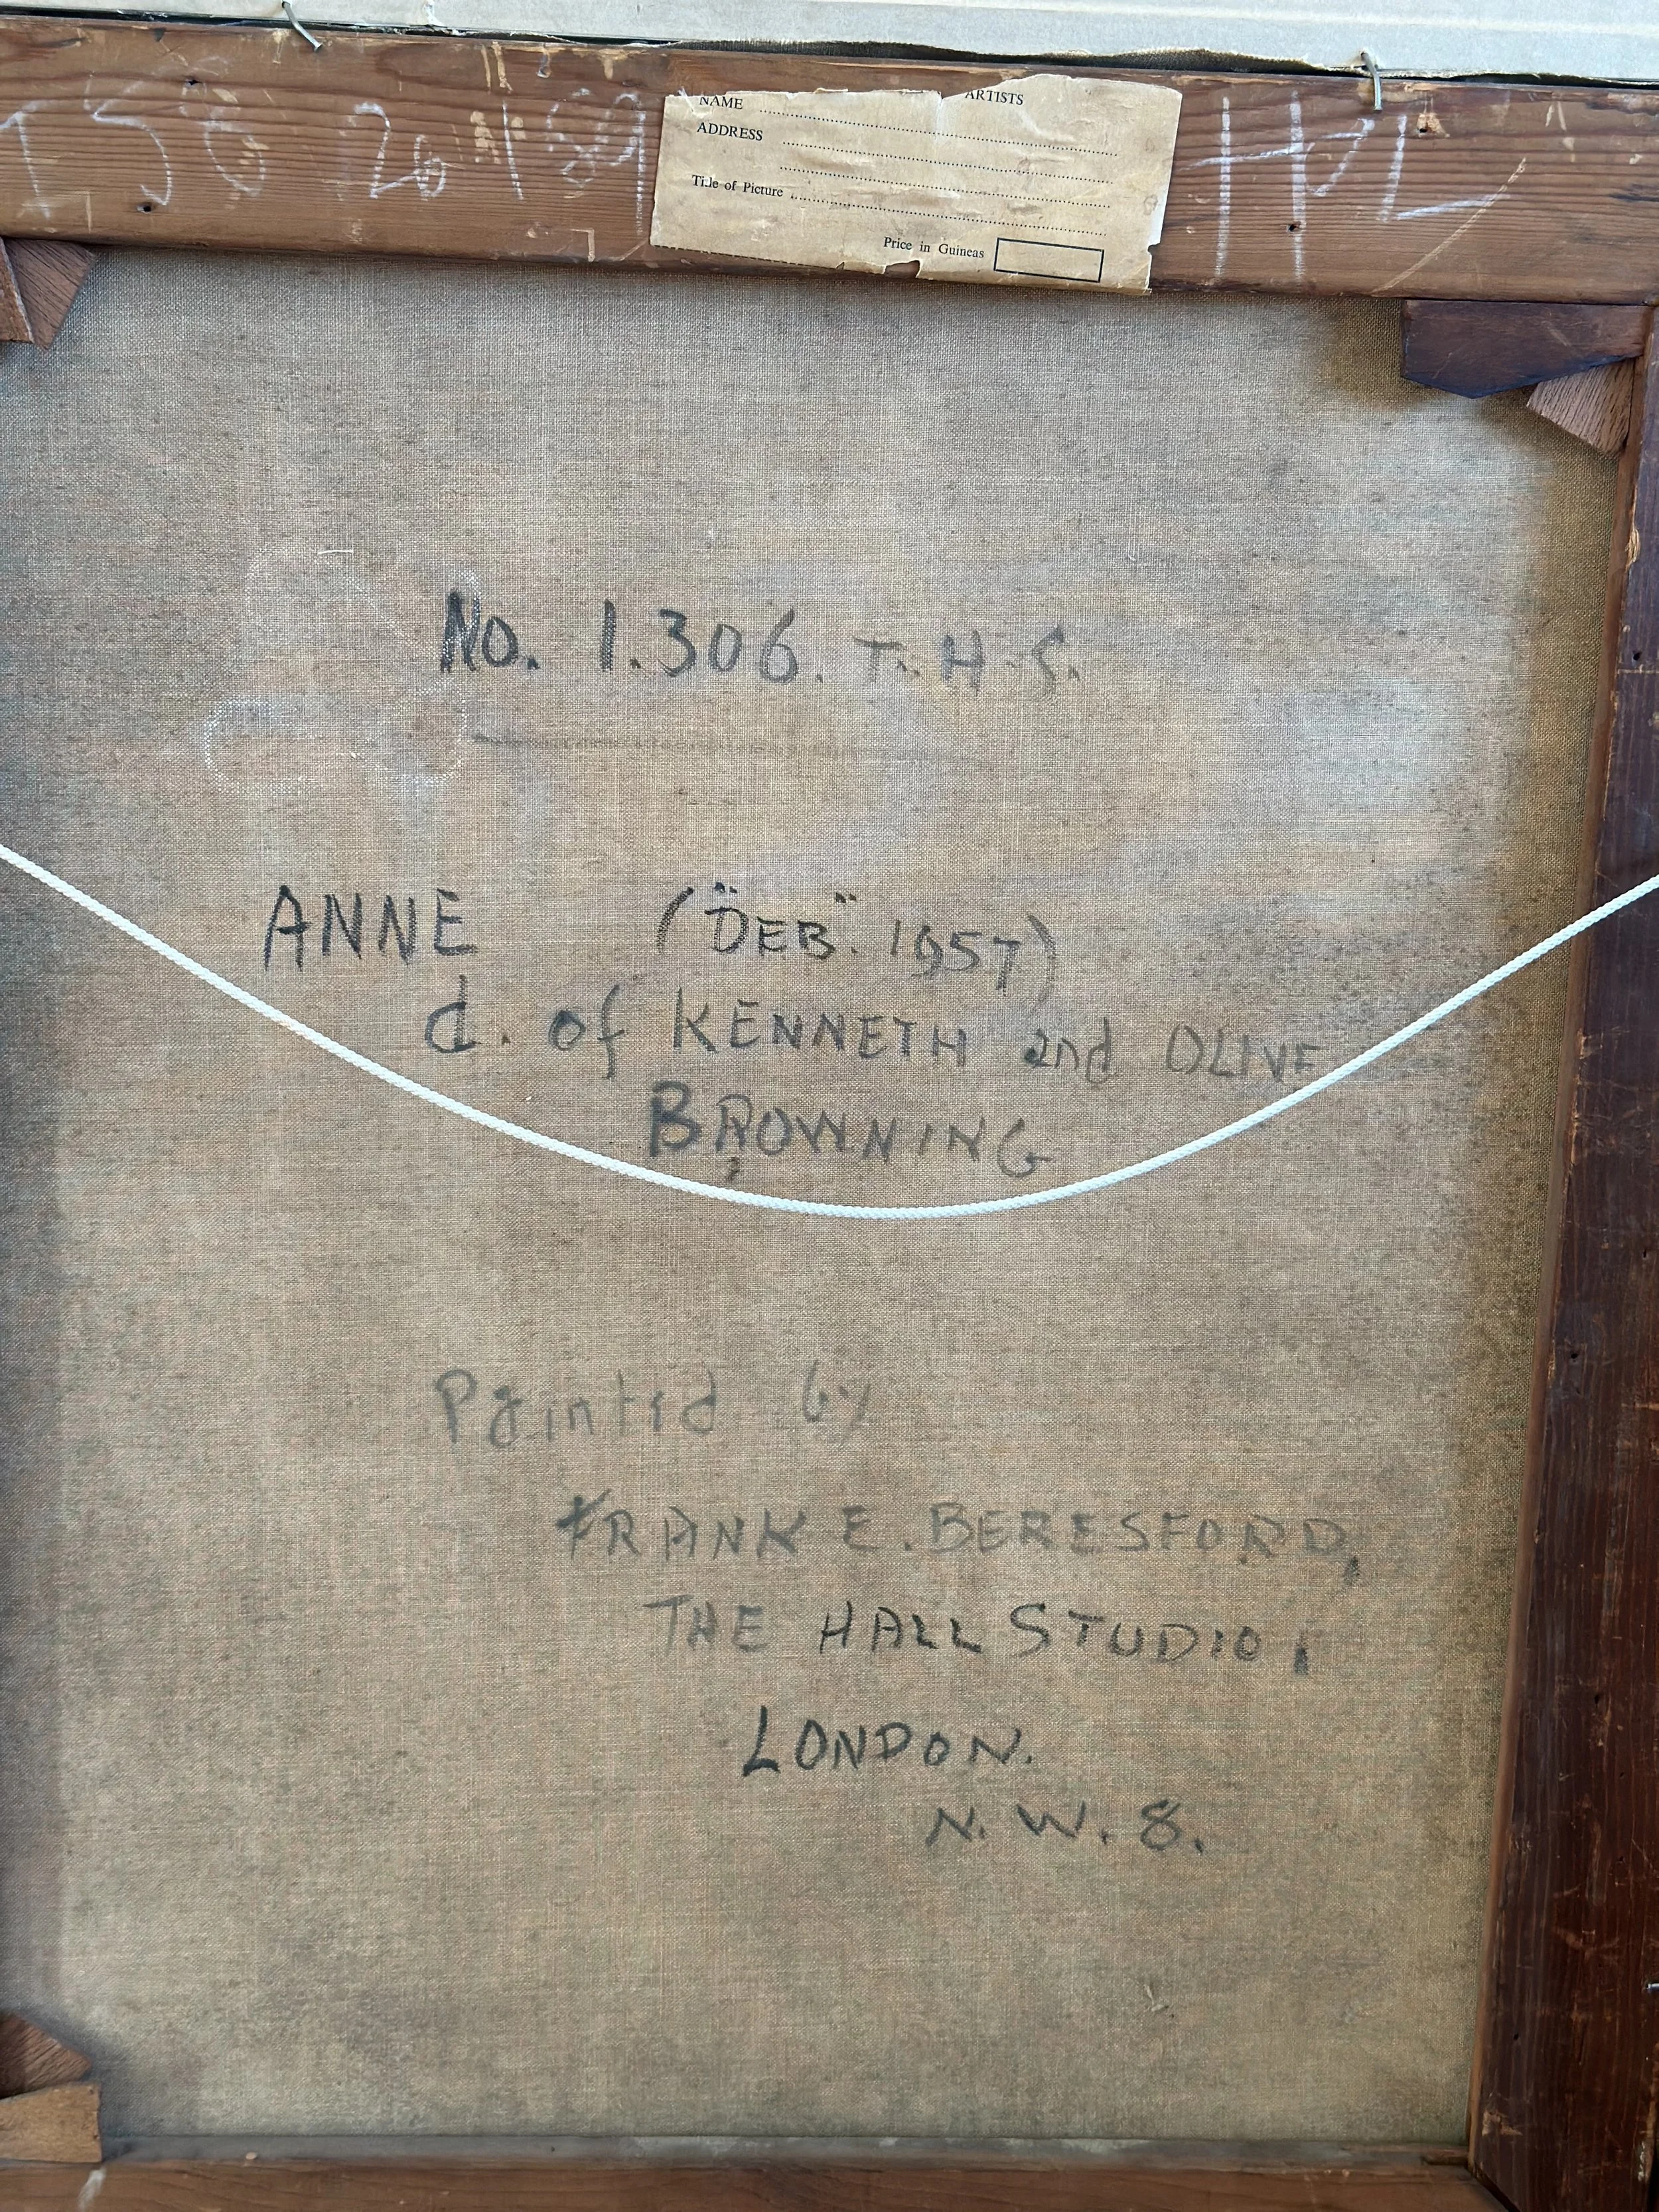 ARTISTS
NAME
ADDRESS
Title of Picture
Price in Guineas
HPL
No. 1.306. T.H.S.
ANNE ("DEB". 1957)
d. of KENNETH and OLIVE
BROWNING
Painted by
FRANK E. BERESFORD,
THE HALL STUDIO,
LONDON.
N.W.8.